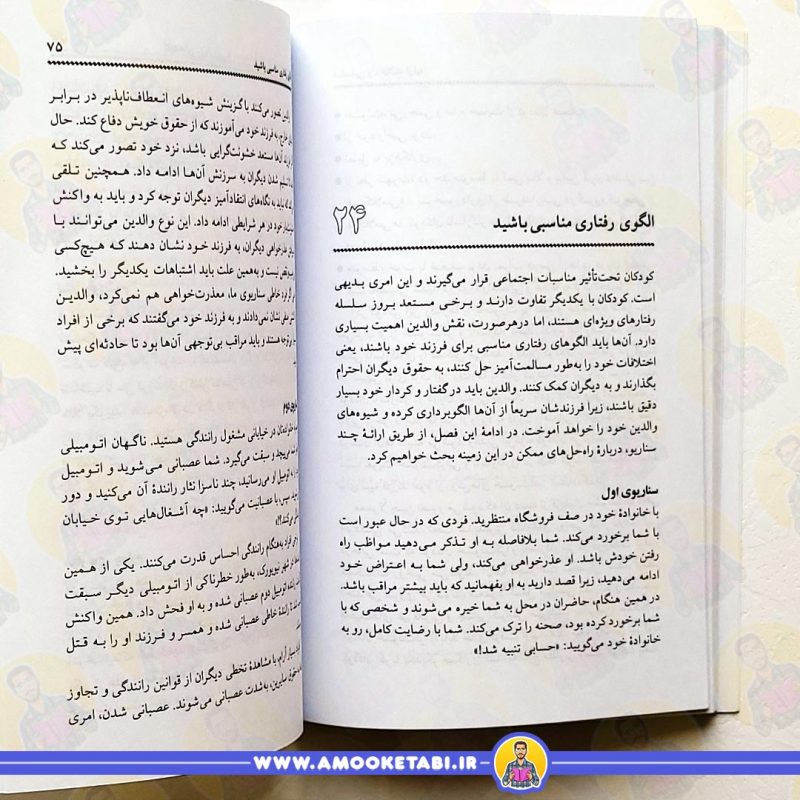 ۲۴
الگوی رفتاری مناسبی باشید
کودکان تحت‌تأثیر مناسبات اجتماعی قرار می‌گیرند و این امری بدیهی
است. کودکان با یکدیگر تفاوت دارند و برخی مستعد بروز سلسله
رفتارهای ویژه‌ای هستند، اما درهرصورت، نقش والدین اهمیت بسیاری
دارد. آن‌ها باید الگوهای رفتاری مناسبی برای فرزند خود باشند، یعنی
اختلافات خود را به‌طور مسالمت‌آمیز حل کنند، به حقوق دیگران احترام
بگذارند و به دیگران کمک کنند. والدین باید در گفتار و کردار خود بسیار
دقیق باشند، زیرا فرزندشان سریعاً از آن‌ها الگوبرداری کرده و شیوه‌های
والدین خود را خواهد آموخت. در ادامۀ این فصل، از طریق ارائۀ چند
سناریو، دربارۀ راه‌حل‌های ممکن در این زمینه بحث خواهیم کرد.
سناریوی اول
با خانوادۀ خود در صف فروشگاه منتظرید. فردی که در حال عبور است
با شما برخورد می‌کند. شما بلافاصله به او تذکر می‌دهید مواظب راه
رفتن خودش باشد. او عذرخواهی می‌کند، ولی شما به اعتراض خود
ادامه می‌دهید، زیرا قصد دارید به او بفهمانید که باید بیشتر مراقب باشد.
در همین هنگام، حاضران در محل به شما خیره می‌شوند و شخصی که با
شما برخورد کرده بود، صحنه را ترک می‌کند. شما با رضایت کامل، رو به
خانوادۀ خود می‌گویید: «حسابی تنبیه شد!»
۷۵
مناسبی باشید
تصور می‌کنند با گزینش شیوه‌های انعطاف‌ناپذیر در برابر
به فرزند خود می‌آموزند که از حقوق خویش دفاع کند. حال
آن‌ها مستعد خشونت‌گرایی باشد، نزد خود تصور می‌کند که
شدن دیگران به سرزنش آن‌ها ادامه داد. همچنین تلقی
نباید به نگاه‌های انتقادآمیز دیگران توجه کرد و باید به واکنش
خود در هر شرایطی ادامه داد. این نوع والدین می‌توانند با
عذرخواهی دیگران، به فرزند خود نشان دهند که هیچ‌کسی
نیست و به‌همین علت باید اشتباهات یکدیگر را بخشید.
فرد خاطی سناریوی ما، معذرت‌خواهی هم نمی‌کرد، والدین
نشان نمی‌دادند و به فرزند خود می‌گفتند که برخی از افراد
هستند و باید مراقب بی‌توجهی آن‌ها بود تا حادثه‌ای پیش
دوم
در خیابانی مشغول رانندگی هستید. ناگهان اتومبیلی
می‌پیچد و سبقت می‌گیرد. شما عصبانی می‌شوید و اتومبیل
به اتومبیل او می‌رسانید، چند ناسزا نثار رانندۀ آن می‌کنید و دور
سپس با عصبانیت می‌گویید: «چه آشغال‌هایی توی خیابان
افراد به‌هنگام رانندگی احساس قدرت می‌کنند. یکی از همین
در شهر نیویورک، به‌طور خطرناکی از اتومبیلی دیگر سبقت
رانندۀ اتومبیل دوم عصبانی شده و به او فحش داد. همین واکنش
تا رانندۀ خاطی عصبانی شده و همسر و فرزند او را به قتل
آرام، با مشاهدۀ تخطی دیگران از قوانین رانندگی و تجاوز
سایرین، به‌شدت عصبانی می‌شوند. عصبانی شدن، امری
WWW.AMOOKETABI.IR